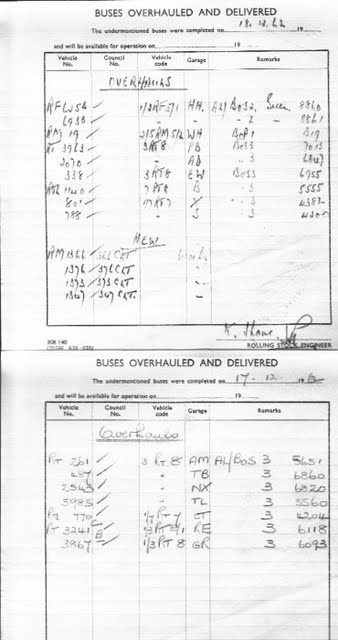 BUSES OVERHAULED AND DELIVERED
The undermentioned buses were completed on 18.12.62 19
and will be available for operation on 19
Vehicle No. Council No. Vehicle code Garage Remarks
OVERHAULS
RFW 5A HH 8860
6938 - - - 2 - 8861
RM 19 WH BoP1 B19
RT 3963 3RT8 PB BoS3 7013
3070 - AD .. 3 6847
338 3RT8 EW BoS3 6955
RTL 1140 7RT8 B .. 3 5555
801 Y .. 3 4382
788 - S .. 3
NEW
RM 1366 / 366 CLT Works
1376 / 376 CLT -
1373 / 373 CLT -
1347 / 347 CLT. -
ROLLING STOCK ENGINEER
308 140
BUSES OVERHAULED AND DELIVERED
The undermentioned buses were completed on 17-12- 19
and will be available for operation on 19
Vehicle No. Council No. Vehicle code Garage Remarks
Overhauls
RT 261 3 RT 8 AM AL/BOS 3 5651
487 " TB 3 6860
2543 " NX 3 6820
3985 " TL 3 5560
RTL 770 1/7 RT 7 CT 3 4204
RT 3241 C RE 3 6118
3867 B 1/3 RT 8 GR 3 6093